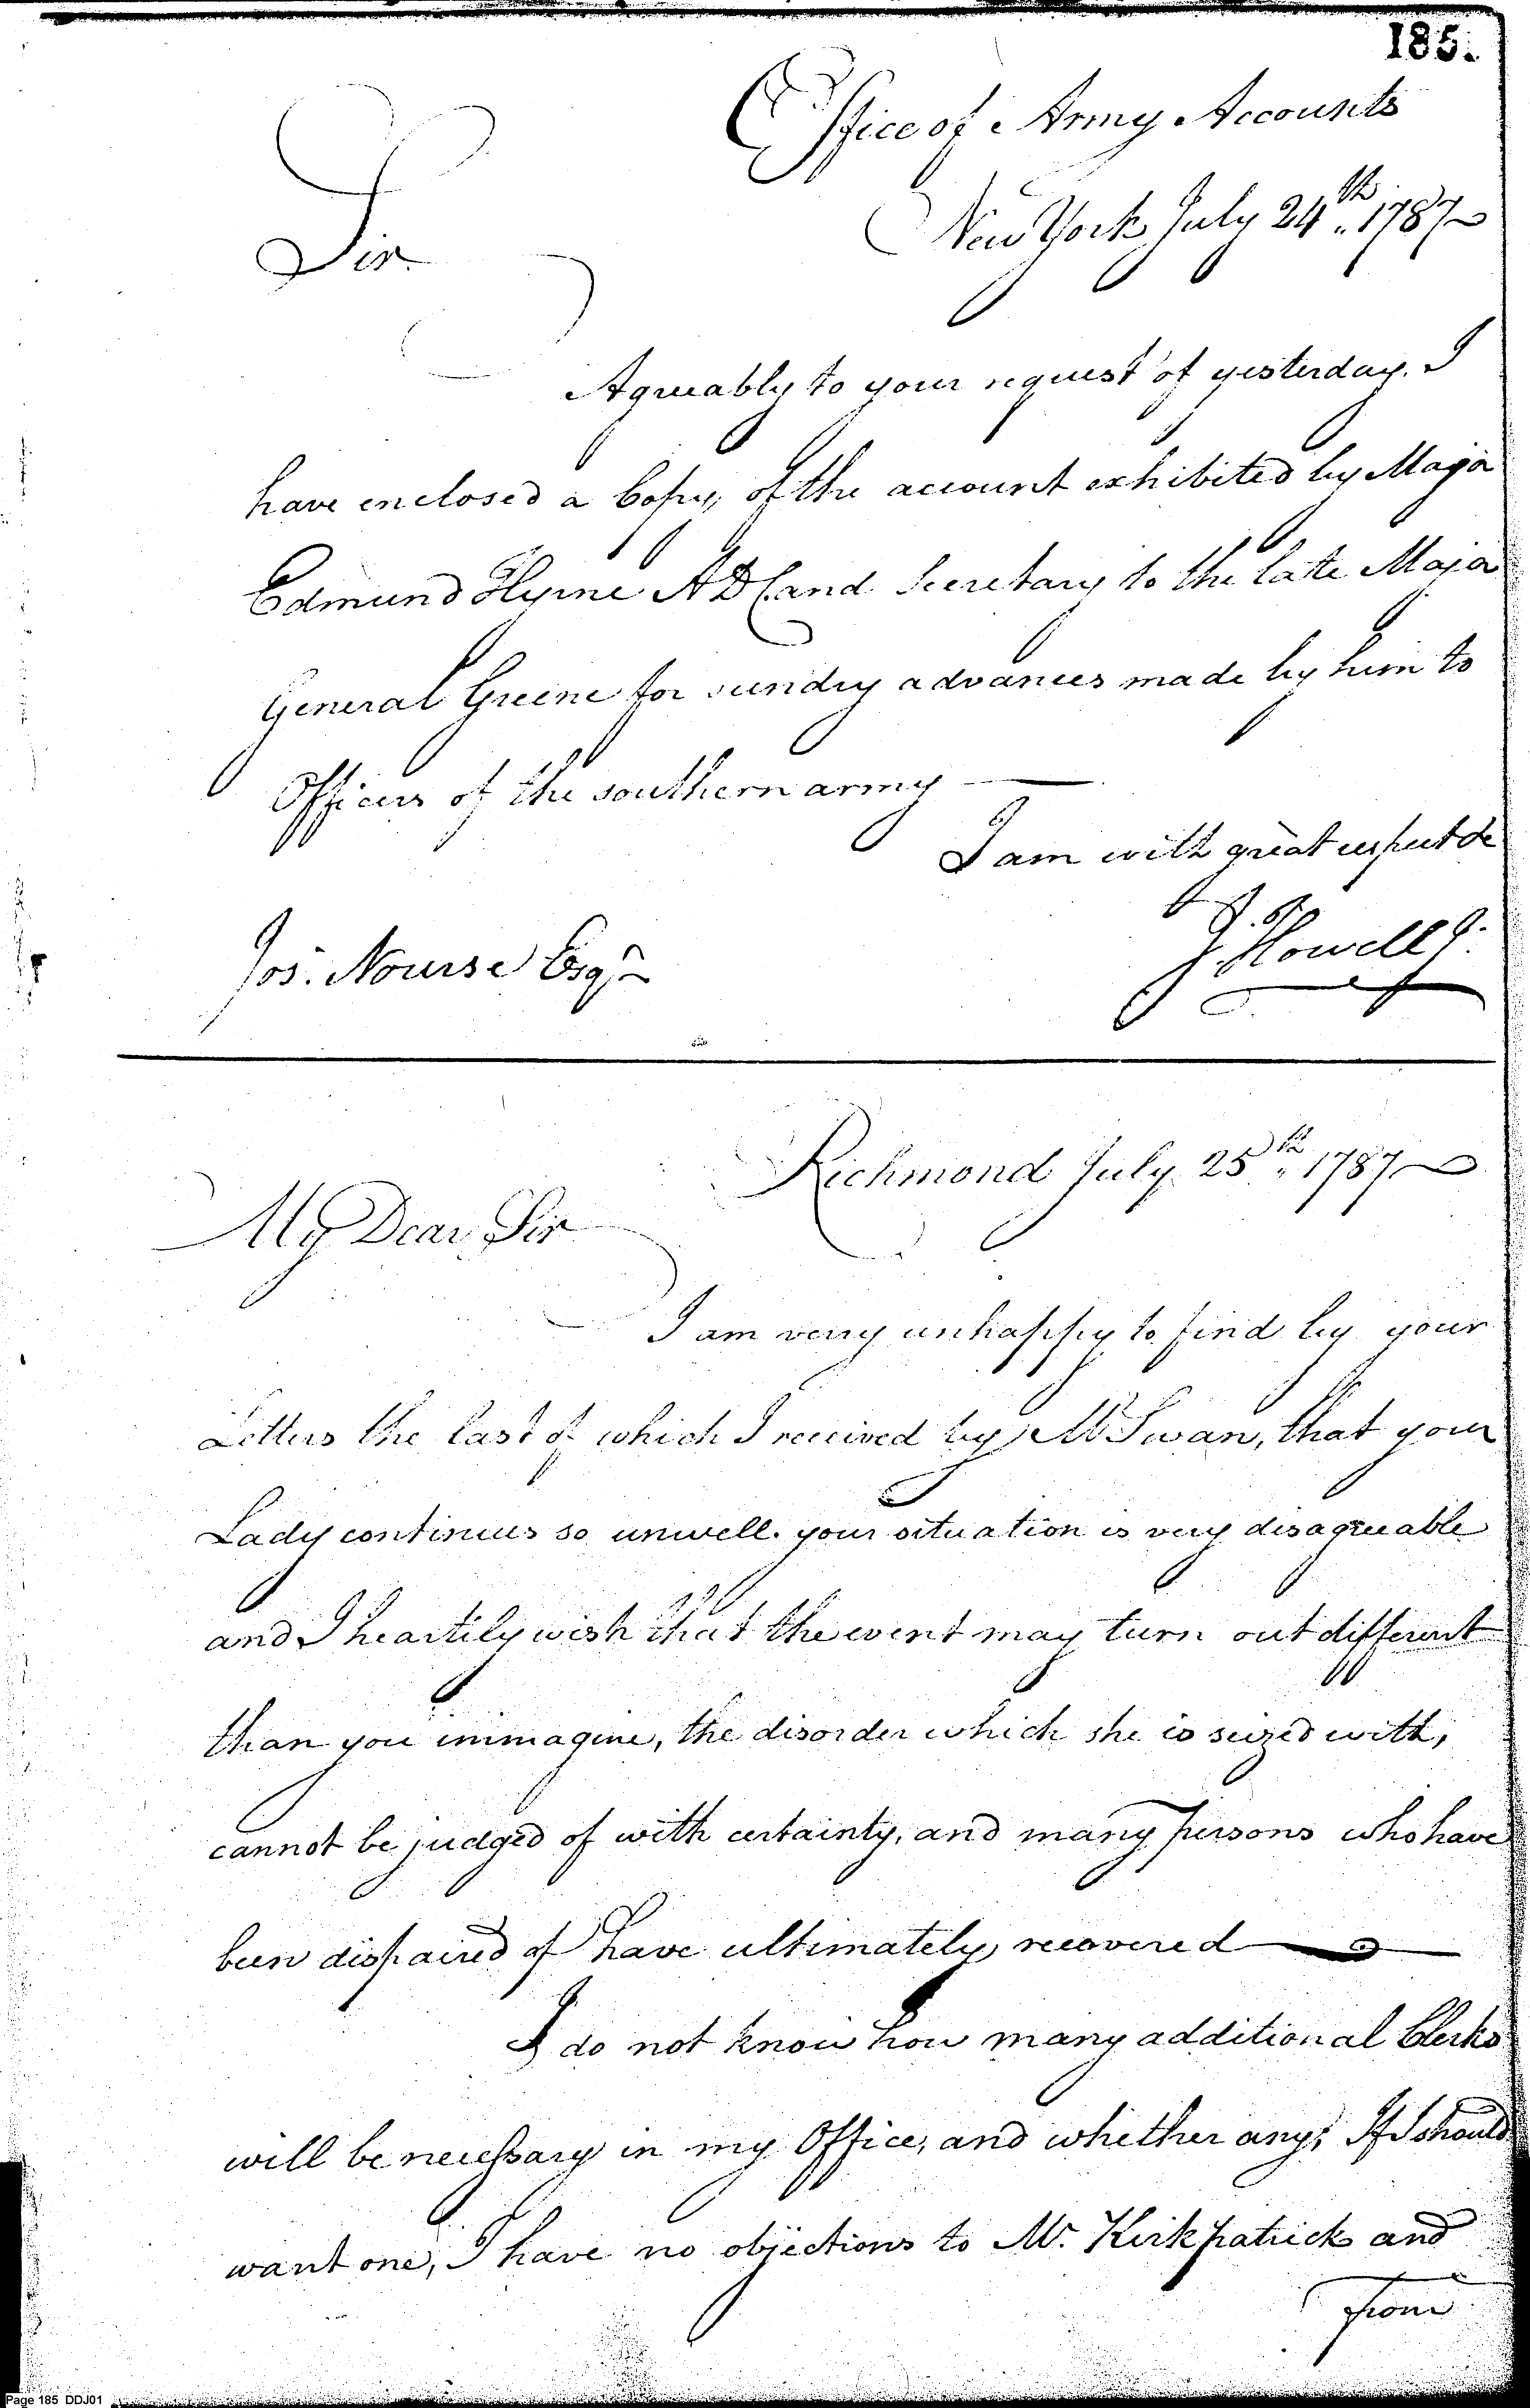 185.
Office of Army Accounts
New York July 24th. 1787
Sir
Agreeably to your request of yesterday. I
have enclosed a Copy, of the account exhibited by Major
Edmund Hyrne ADC and Secretary to the late Major
General Greene for sundry advances made by him to
Officers of the southern army
I am with great respect &c
J Howell Jr.
Jos. Nourse Esqr
Richmond July 25th. 1787
My Dear Sir
I am very unhappy to find by your
Letters the last of which I received by Mr Swan, that your
Lady continues so unwell. your situation is very disagreeable
and I heartily wish that the event may turn out different
than you immagine, the disorder which she is seized with,
cannot be judged of with certainty, and many persons who have
been dispaired of have ultimately recovered
I do not know how many additional Clerks
will be necessary in my Office, and whether any; If I should
want one, I have no objections to Mr. Kirkpatrick and
from
Page 185 DDJ01